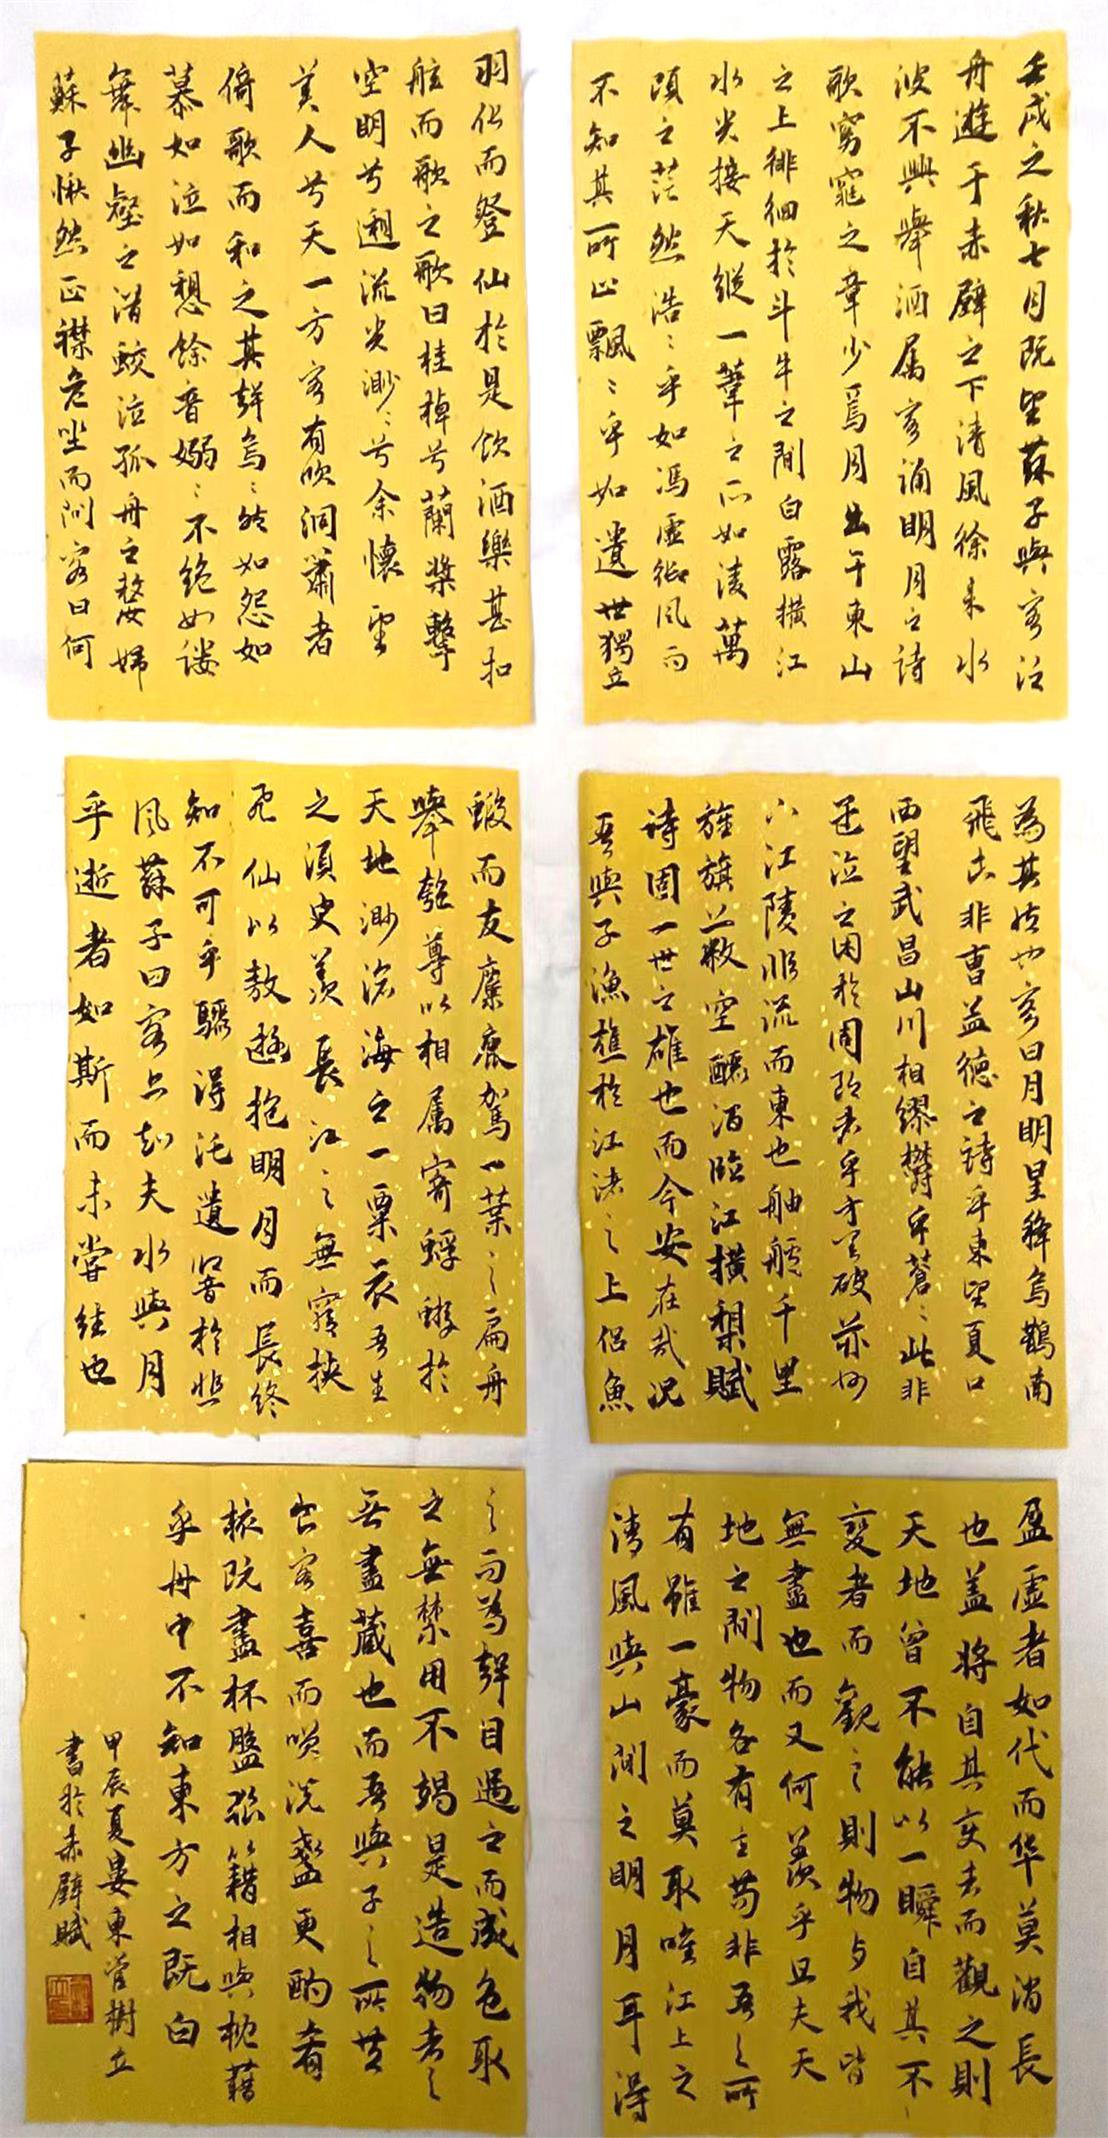 壬戌之秋七月既望蘇子與客泛
舟遊于赤壁之下清風徐来水
波不興舉酒属客誦明月之詩
歌窈窕之章少焉月出于東山
之上徘徊於斗牛之間白露横江
水光接天縱一葦之所如凌萬
頃之茫然浩〻乎如馮虚御風而
不知其所止飄〻乎如遺世獨立
羽化而登仙於是飲酒樂甚扣
舷而歌之歌曰桂棹兮蘭槳擊
空明兮遡流光渺〻兮余懷望
美人兮天一方客有吹洞簫者
倚歌而和之其聲烏〻然如怨如
慕如泣如愬餘音嫋〻不絶如縷
舞幽壑之潜蛟泣孤舟之嫠婦
蘇子愀然正襟危坐而问客曰何
為其然也客曰月明星稀烏鵲南
飛此非曹孟德之詩乎東望夏口
西望武昌山川相缪鬱乎蒼〻此非
孟德之困於周郎者乎方其破荆州
下江陵順流而東也舳艫千里
旌旗蔽空釃酒臨江横槊賦
詩固一世之雄也而今安在哉况
吾與子漁樵於江渚之上侣魚
蝦而友麋鹿駕一葉之扁舟
舉匏尊以相属寄蜉蝣於
天地渺滄海之一粟哀吾生
之須臾羡長江之無窮挟
飛仙以敖遊抱明月而長终
知不可乎驟得託遺響於悲
风蘇子曰客亦知夫水與月
乎逝者如斯而未嘗往也
盈虚者如代而卒莫消長
也盖將自其变者而觀之則
天地曾不能以一瞬自其不
變者而觀之則物与我皆
無盡也而又何羡乎且夫天
地之間物各有主苟非吾之所
有雖一豪而莫取唯江上之
清風與山间之明月耳得
之而為聲目遇之而成色取
之無禁用不竭是造物者之
無盡藏也而吾與子之所共
食客喜而咲洗盞更酌肴
核既盡杯盤狼籍相與枕藉
乎舟中不知東方之既白
甲辰夏晏東管樹立
書於赤壁賦